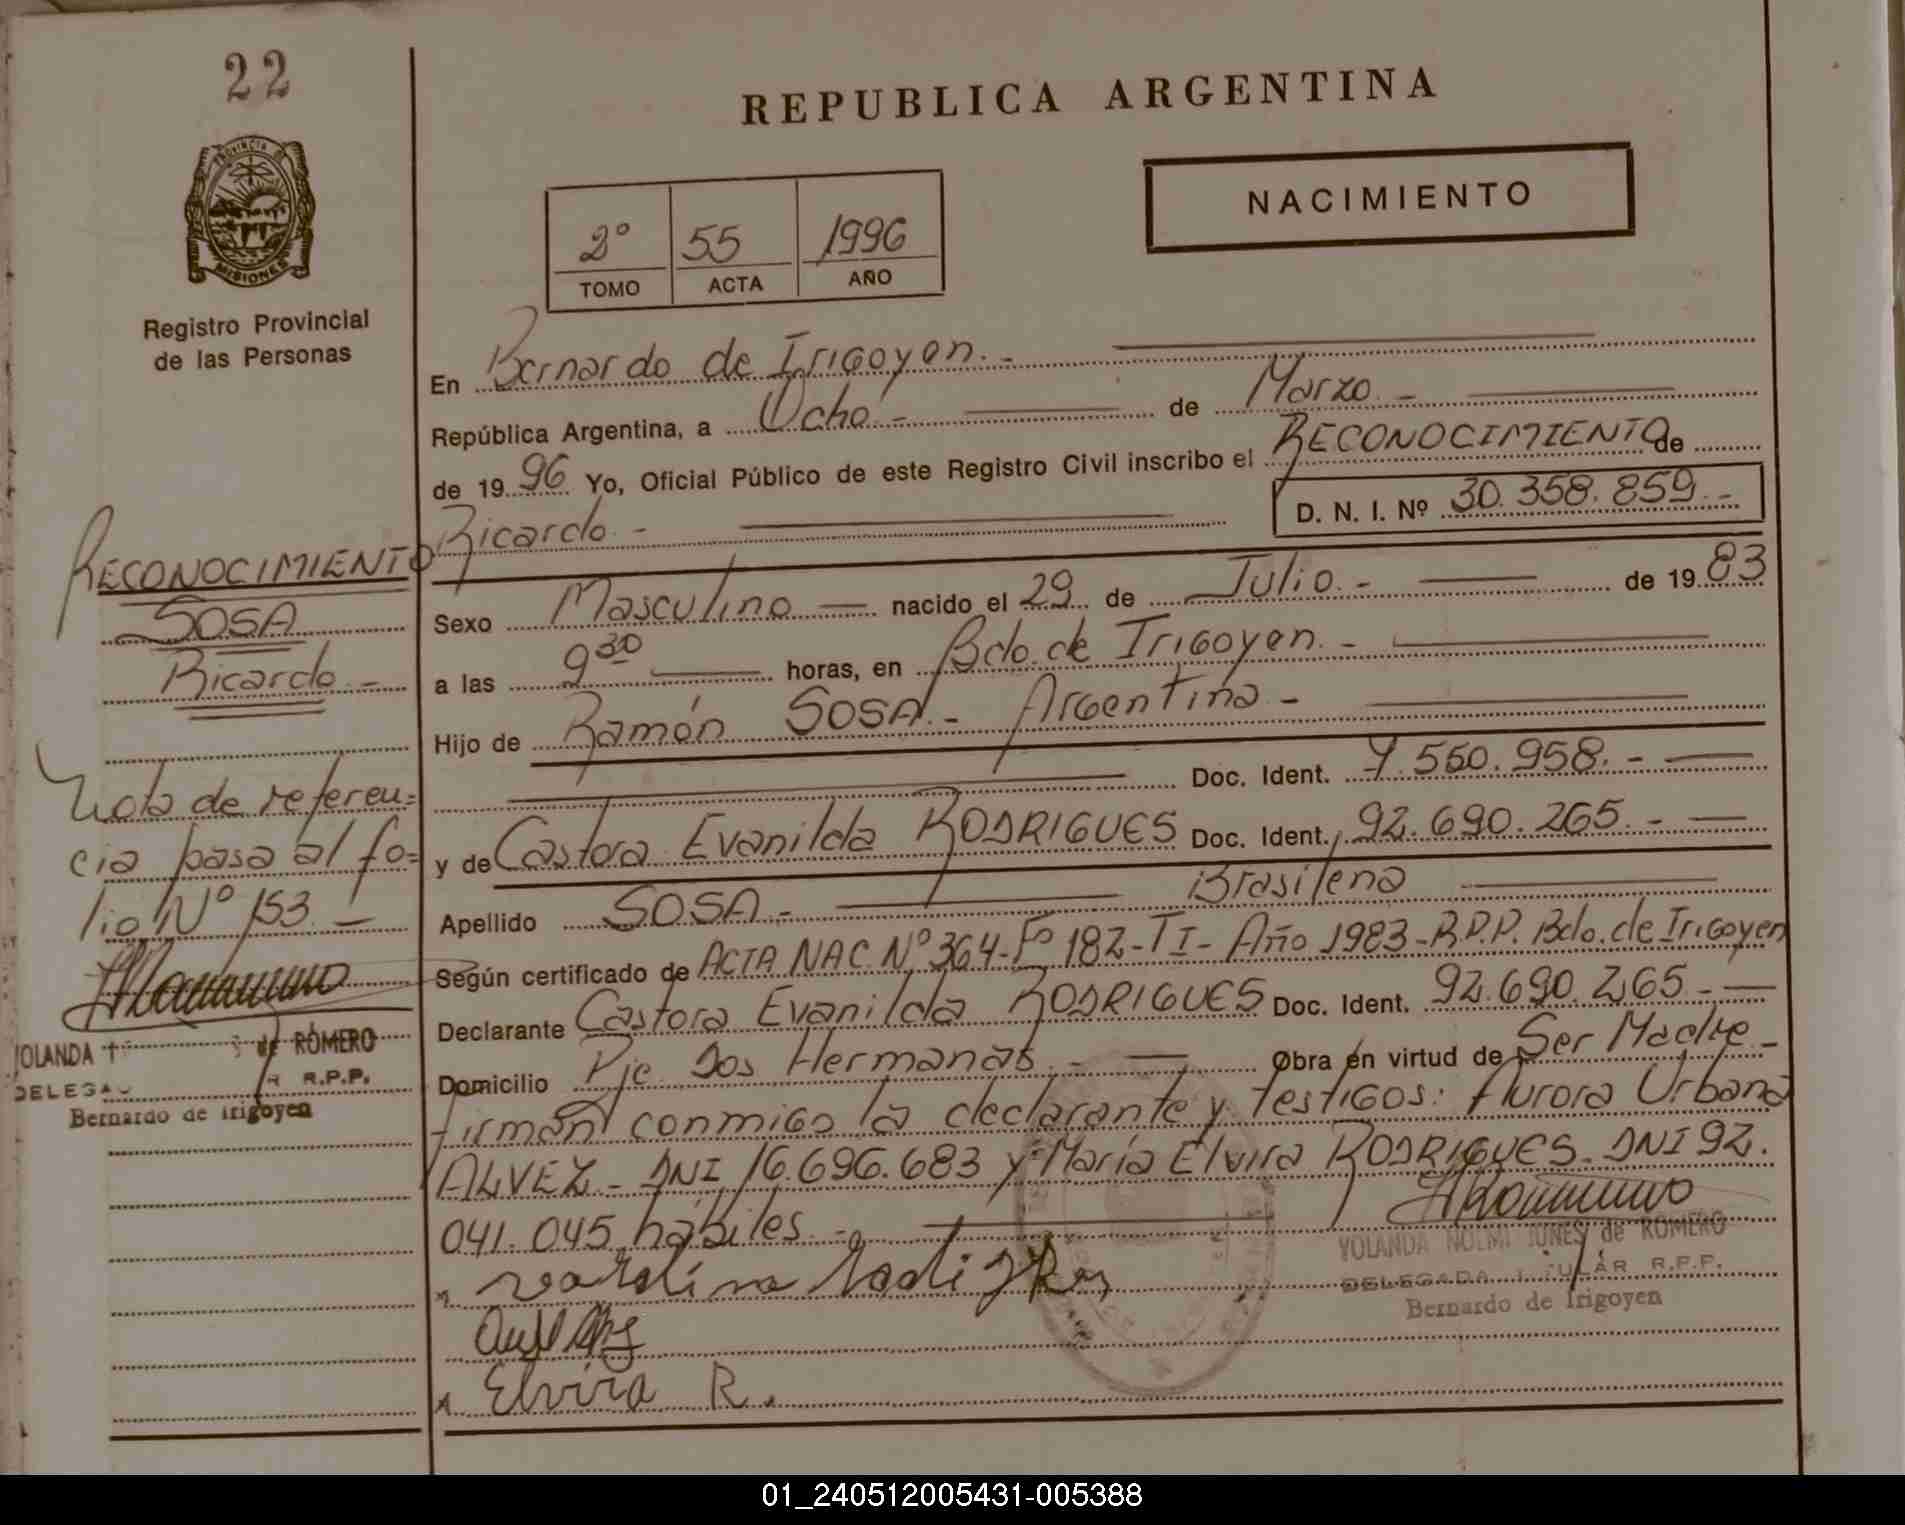 22
REPUBLICA ARGENTINA
NACIMIENTO
PROVINCIA DE
MISIONES
Registro Provincial
de las Personas
2º 55 1996
TOMO ACTA AÑO
En Bernardo de Irigoyen.-
República Argentina, a Ocho.- de Marzo.-
de 1996 Yo, Oficial Público de este Registro Civil inscribo el RECONOCIMIENTO de
Ricardo.- D. N. I. Nº 30.358.859.-
Sexo Masculino nacido el 29 de Julio.- de 1983
a las 9 30 horas, en Bdo. de Irigoyen.-
Hijo de Ramón SOSA.- Argentina.-
Doc. Ident. 7.550.958.-
y de Castora Evanilda RODRIGUES Doc. Ident. 92.690.265.-
Apellido SOSA.- Brasileña
Según certificado de ACTA NAC. Nº 364-Fº 182-TI-Año 1983-R.P.P. Bdo. de Irigoyen
Declarante Castora Evanilda RODRIGUES Doc. Ident. 92.690.265.-
Domicilio Pje. Dos Hermanas.- Obra en virtud de Ser Madre.-
firman conmigo la declarante y testigos: Aurora Urbana
ALVEZ.- DNI 16.696.683 y María Elvira RODRIGUES. DNI 92.
041.045 hábiles.-
YOLANDA NOEMI JUNES de ROMERO
DELEGADA TITULAR R.P.P.
Bernardo de Irigoyen
x Elvira R.
RECONOCIMIENTO
SOSA
Ricardo.-
Nota de referen=
cia pasa al fo=
lio Nº 153.-
YOLANDA de ROMERO
DELEGA R.P.P.
Bernardo de Irigoyen
01_240512005431-005388